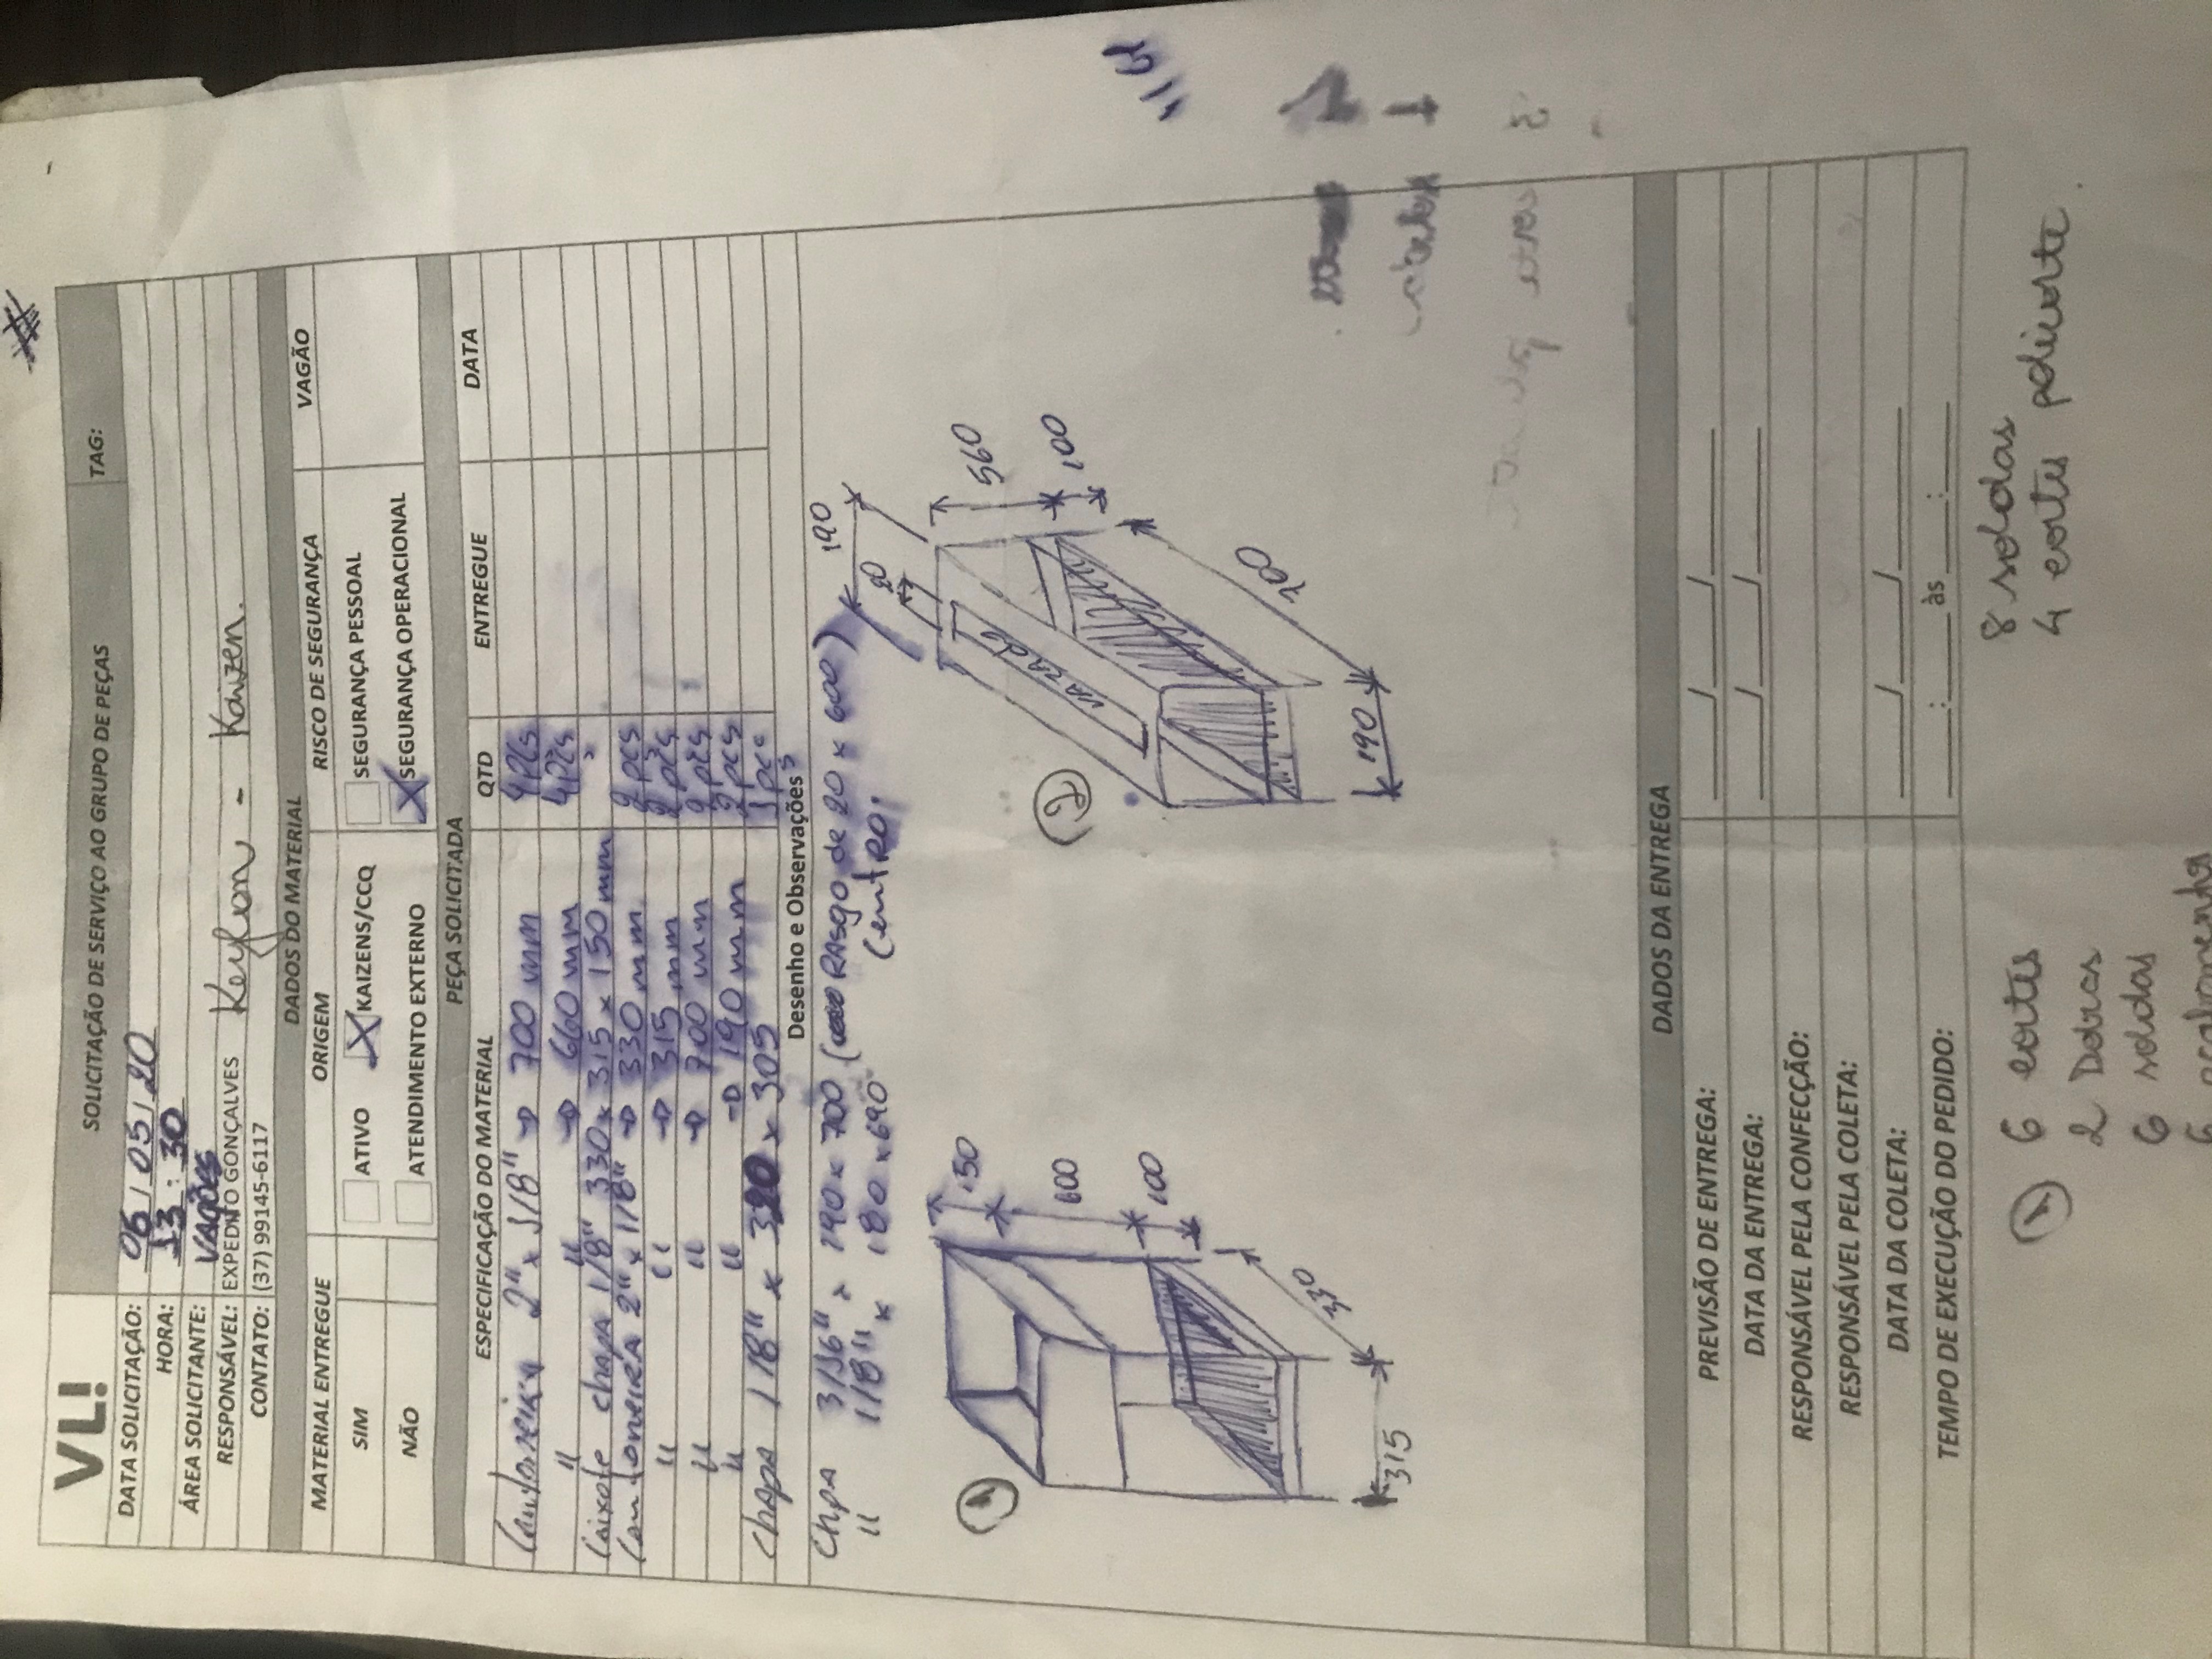 VLI
SOLICITAÇÃO DE SERVIÇO AO GRUPO DE PEÇAS
TAG:
DATA SOLICITAÇÃO: 06/05/20
HORA: 13:30
ÁREA SOLICITANTE: VAGÕES
RESPONSÁVEL: EXPEDITO GONÇALVES Keylon - Kaizen.
CONTATO: (37) 99145-6117
DADOS DO MATERIAL
MATERIAL ENTREGUE ORIGEM RISCO DE SEGURANÇA VAGÃO
SIM ATIVO X KAIZENS/CCQ SEGURANÇA PESSOAL
NÃO ATENDIMENTO EXTERNO X SEGURANÇA OPERACIONAL
PEÇA SOLICITADA
ESPECIFICAÇÃO DO MATERIAL QTD ENTREGUE DATA
Cantoneira 2" x 1/8" → 700 mm 4 PCS
" " → 660 mm 4 PCS
Caixote chapa 1/8" 330 x 315 x 150 mm
Cantoneira 2" x 1/8" → 330 mm 2 PCS
" " → 315 mm 2 PCS
" " → 700 mm 2 PCS
" " → 190 mm 2 PCS
Chapa 1/8" x 320 x 305 1 PC
Desenho e Observações
Chpa 3/16" x 190 x 700 (RASgo de 20 x 600)
" 1/8" x 180 x 690 CentRO
1
150
600
100
330
315
2
190
20
vazado
560
100
700
190
DADOS DA ENTREGA
PREVISÃO DE ENTREGA: ___/___/___
DATA DA ENTREGA: ___/___/___
RESPONSÁVEL PELA CONFECÇÃO:
RESPONSÁVEL PELA COLETA:
DATA DA COLETA: ___/___/___
TEMPO DE EXECUÇÃO DO PEDIDO: ___:___ às ___:___
1 6 cortes
2 Dobras
6 soldas
8 soldas
4 cortes policorte